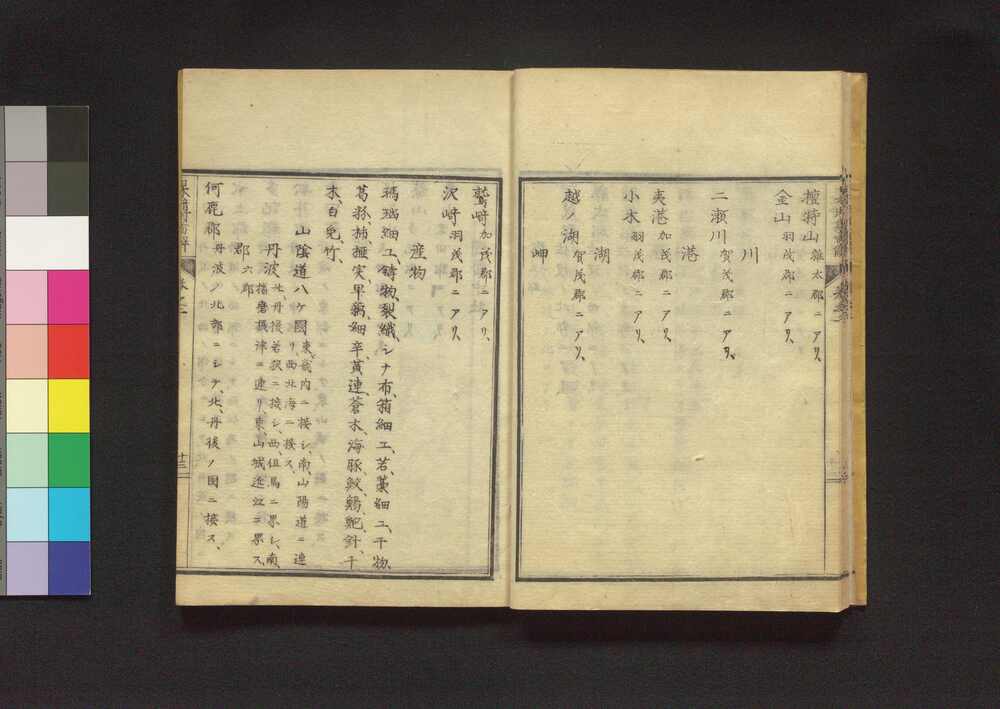 檀特山 雑太郡ニアリ、
金山 羽茂郡ニアリ、
川
二瀬川 賀茂郡ニアリ、
港
夷港 加茂郡ニアリ、
小木 羽茂郡ニアリ、
湖
越ノ湖 賀茂郡ニアリ、
岬
鷲﨑 加茂郡ニアリ、
沢﨑 羽茂郡ニアリ、
産物
瑪瑙細工、鋳物、裂織、シナ布、箱細工、若藁細工、干物、
葛
木、白兎、竹、
山陰道八ケ國 東、畿内ニ接シ、南、山陽道ニ連
リ、西北海ニ接ス、
丹波 北、丹後若狭ニ接シ、西、但馬ニ界シ、南、
播磨摂津ニ連リ、東、山城近江ニ界ス、
郡 六郡
何鹿郡 丹波ノ北部ニシテ、北、丹後ノ国ニ接ス、
十三